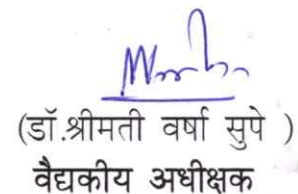 (डॉ.श्रीमती वर्षा सुपे )
वैद्यकीय अधीक्षक